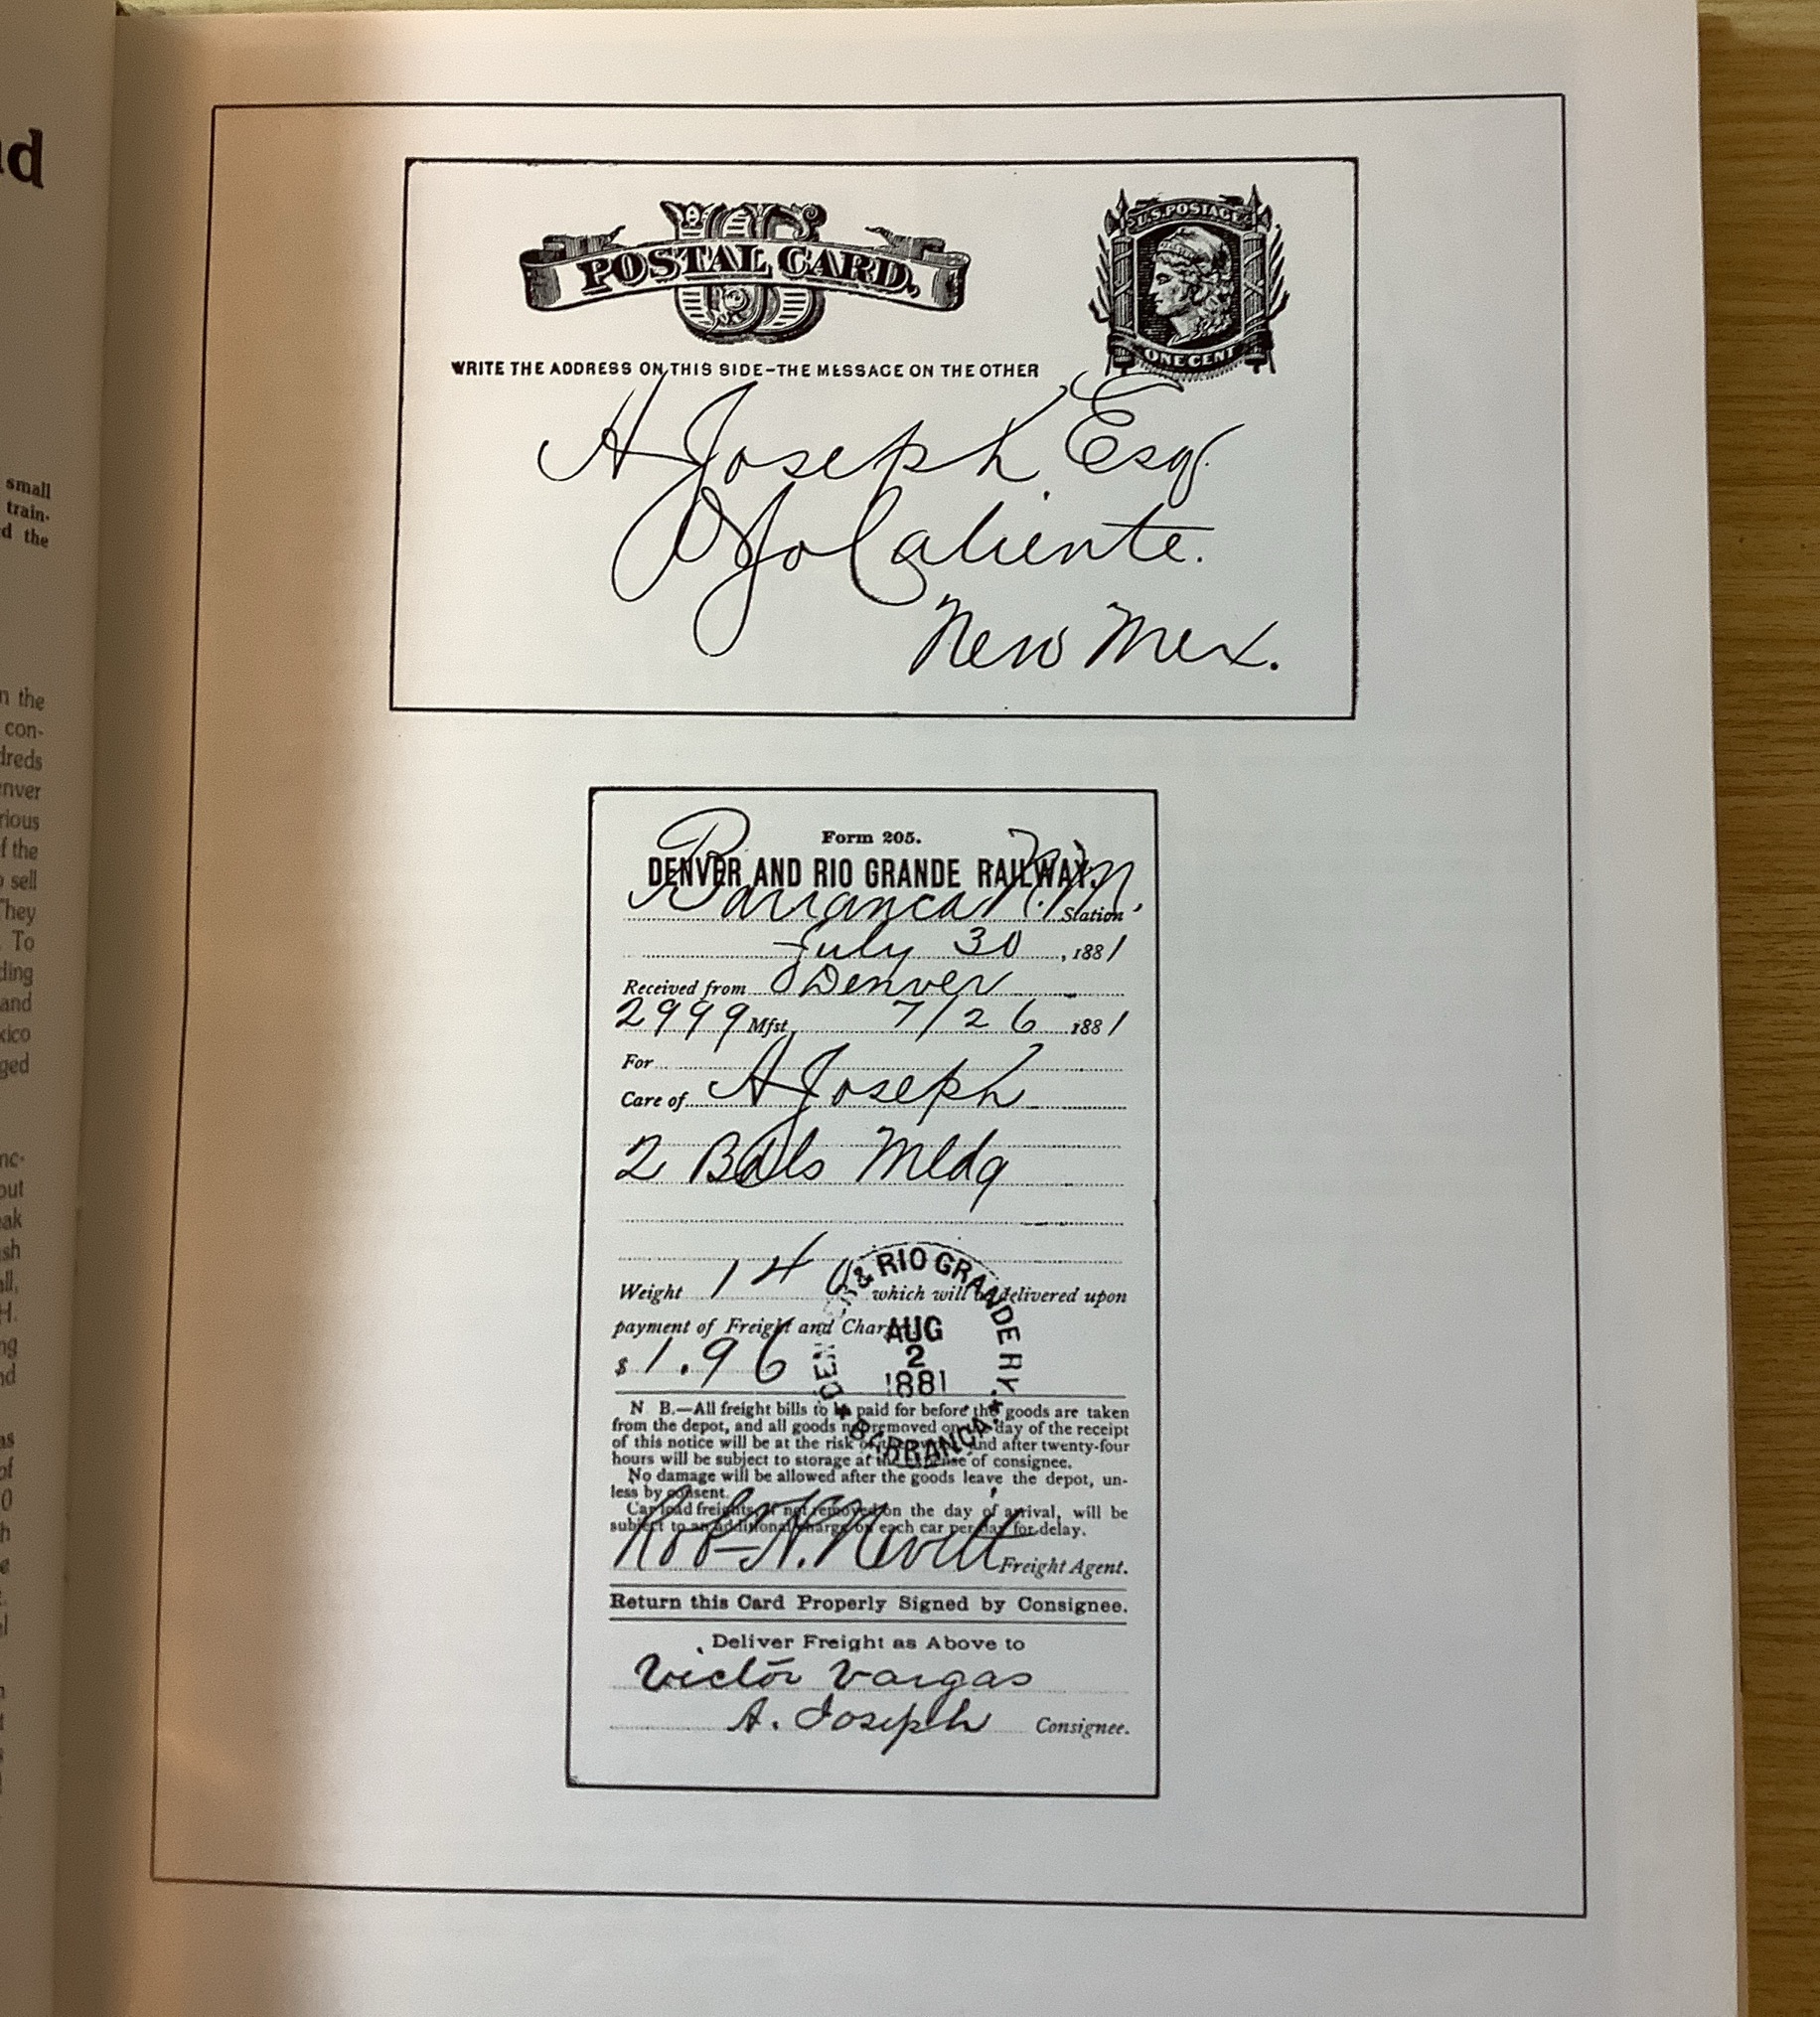 nd
small
train-
d the
n the
con-
dreds
enver
rious
f the
sell
They
To
ding
and
xico
ged
nc-
out
eak
sh
all,
H.
ng
nd
as
of
0
h
e
U.S. POSTAGE
US
POSTAL CARD,
ONE CENT
WRITE THE ADDRESS ON THIS SIDE-THE MESSAGE ON THE OTHER
A Joseph, Esq.
Ojo Caliente.
New Mex.
Form 205.
DENVER AND RIO GRANDE RAILWAY.
Barranca N.M. Station
July 30, 1881
Received from Denver
2999 Mfst. 7/26 1881
For
Care of A Joseph
2 Bdls Mldg
Weight 140 which will be delivered upon
payment of Freight and Charges
$ 1.96
DEN & RIO GRANDE RY.
AUG
2
1881
BARRANCA
N B.—All freight bills to be paid for before the goods are taken
from the depot, and all goods not removed on the day of the receipt
of this notice will be at the risk of the and after twenty-four
hours will be subject to storage at the expense of consignee.
No damage will be allowed after the goods leave the depot, un-
less by consent.
Carload freights, if not removed on the day of arrival, will be
subject to an additional charge on each car per day for delay.
Robt N. Nevitt Freight Agent.
Return this Card Properly Signed by Consignee.
Deliver Freight as Above to
Victor Vargas
A. Joseph Consignee.